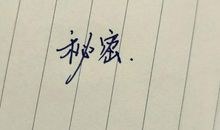 秘密.